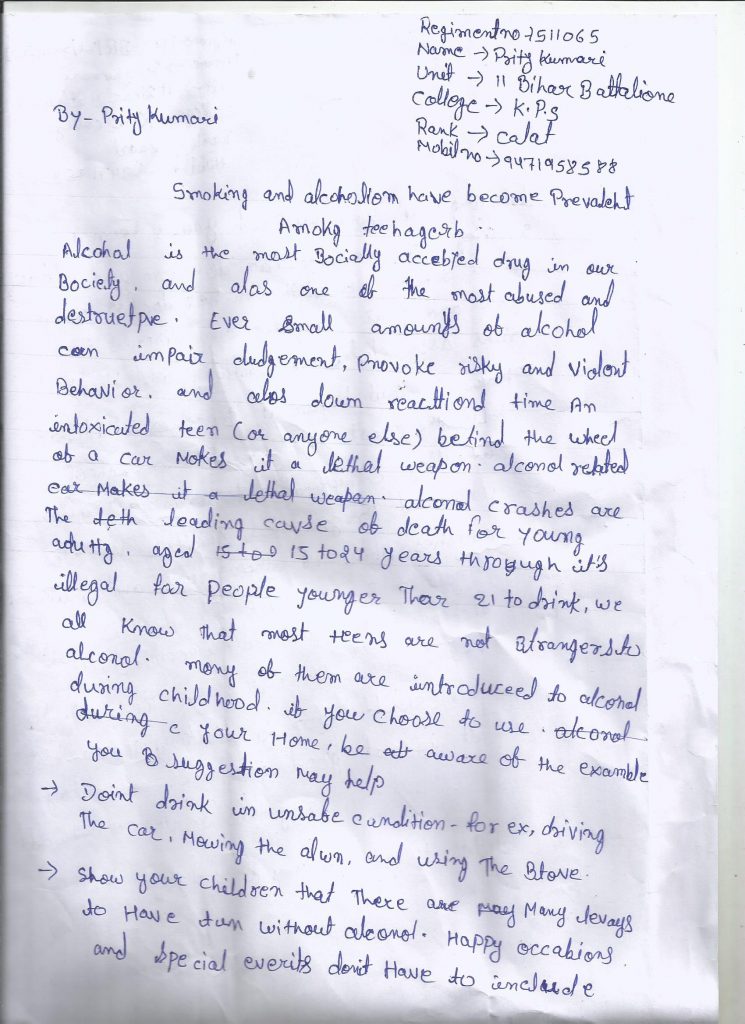 Regimentno 7511065
Name → Prity Kumari
Unit → 11 Bihar Battalione
College → K.P.S
Rank → calat
Mobil no → 9471958588
By - Prity Kumari
Smoking and alcoholiom have become Prevaleht
Amokg teehagerb
Alcohal is the mast Bocially accebted drug in our
Bociety. and alas one of the most abused and
destruetpve. Ever Small amounts of alcohol
can impair dudgement, Provoke risky and Violent
Behavior. and alos down reacttiond time An
intoxicated teen (or anyone else) behind the wheel
of a car Mokes it a lethal weapon. alconol related
ear Makes it a lethal weapan. alconal crashes are
The teth leading cavse of death for young
adutty. aged 15 to 0 15 to 24 years through it's
illegal far people younger Thar 21 to drink, we
all Know that most teens are not Btrangers to
alconol. mony of them are introduceed to alconal
during childhood. if you choose to use. atconol
during c your Home, be att aware of the examble
you B suggestion may help
→ Doint drink in unsabe cundition - for ex, driving
The car, Mowing the alwn, and using The Btove.
→ Show your children that There are may Many levays
to Have tun without aleonol. Happy occabions.
and Special everits don't Have to include